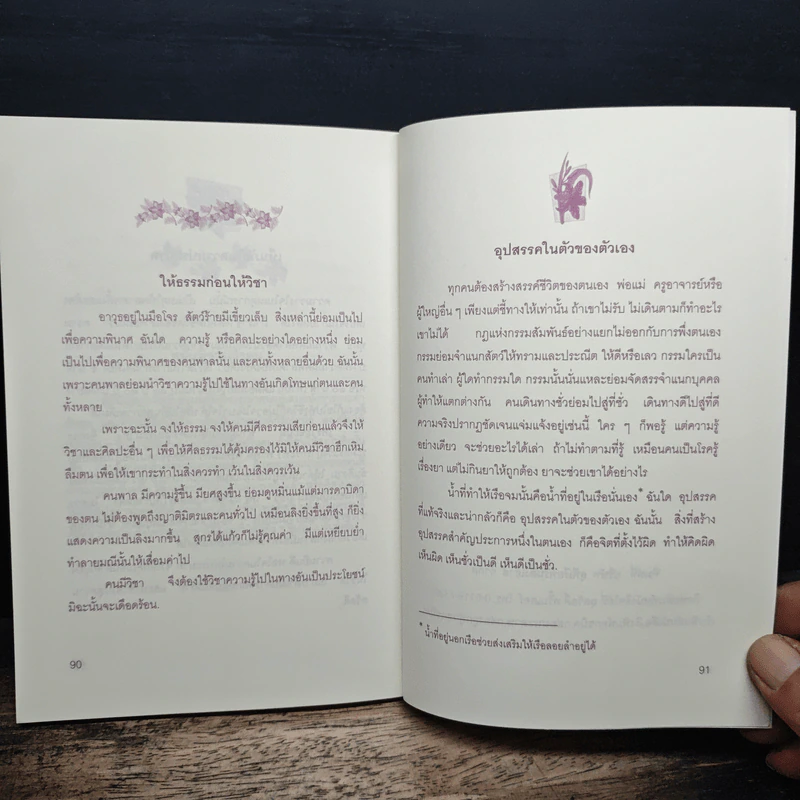 ให้ธรรมก่อนให้วิชา
อาวุธอยู่ในมือโจร สัตว์ร้ายมีเขี้ยวเล็บ สิ่งเหล่านี้ย่อมเป็นไป
เพื่อความพินาศ ฉันใด ความรู้ หรือศิลปะอย่างใดอย่างหนึ่ง ย่อม
เป็นไปเพื่อความพินาศของคนพาลนั้น และคนทั้งหลายอื่นด้วย ฉันนั้น
เพราะคนพาลย่อมนำวิชาความรู้ไปใช้ในทางอันเกิดโทษแก่ตนและคน
ทั้งหลาย
เพราะฉะนั้น จงให้ธรรม จงให้คนมีศีลธรรมเสียก่อนแล้วจึงให้
วิชาและศิลปะอื่น ๆ เพื่อให้ศีลธรรมได้คุ้มครองไว้มิให้คนมีวิชาฮึกเหิม
ลืมตน เพื่อให้เขากระทำในสิ่งควรทำ เว้นในสิ่งควรเว้น
คนพาล มีความรู้ขึ้น มียศสูงขึ้น ย่อมดูหมิ่นแม้แต่มารดาบิดา
ของตน ไม่ต้องพูดถึงญาติมิตรและคนทั่วไป เหมือนลิงยิ่งขึ้นที่สูง ก็ยิ่ง
แสดงความเป็นลิงมากขึ้น สุกรได้แก้วก็ไม่รู้คุณค่า มีแต่เหยียบย่ำ
ทำลายมณีนั้นให้เสื่อมค่าไป
คนมีวิชา จึงต้องใช้วิชาความรู้ไปในทางอันเป็นประโยชน์
มิฉะนั้นจะเดือดร้อน.
90
อุปสรรคในตัวของตัวเอง
ทุกคนต้องสร้างสรรค์ชีวิตของตนเอง พ่อแม่ ครูอาจารย์หรือ
ผู้ใหญ่อื่น ๆ เพียงแต่ชี้ทางให้เท่านั้น ถ้าเขาไม่รับ ไม่เดินตามก็ทำอะไร
เขาไม่ได้ กฎแห่งกรรมสัมพันธ์อย่างแยกไม่ออกกับการพึ่งตนเอง
กรรมย่อมจำแนกสัตว์ให้ทรามและประณีต ให้ดีหรือเลว กรรมใครเป็น
คนทำเล่า ผู้ใดทำกรรมใด กรรมนั้นนั่นแหละย่อมจัดสรรจำแนกบุคคล
ผู้ทำให้แตกต่างกัน คนเดินทางชั่วย่อมไปสู่ที่ชั่ว เดินทางดีไปสู่ที่ดี
ความจริงปรากฏชัดเจนแจ่มแจ้งอยู่เช่นนี้ ใคร ๆ ก็พอรู้ แต่ความรู้
อย่างเดียว จะช่วยอะไรได้เล่า ถ้าไม่ทำตามที่รู้ เหมือนคนเป็นโรครู้
เรื่องยา แต่ไม่กินยาให้ถูกต้อง ยาจะช่วยเขาได้อย่างไร
น้ำที่ทำให้เรือจมนั้นคือน้ำที่อยู่ในเรือนั่นเอง* ฉันใด อุปสรรค
ที่แท้จริงและน่ากลัวก็คือ อุปสรรคในตัวของตัวเอง ฉันนั้น สิ่งที่สร้าง
อุปสรรคสำคัญประการหนึ่งในตนเอง ก็คือจิตที่ตั้งไว้ผิด ทำให้คิดผิด
เห็นผิด เห็นชั่วเป็นดี เห็นดีเป็นชั่ว.
* น้ำที่อยู่นอกเรือช่วยส่งเสริมให้เรือลอยลำอยู่ได้
91